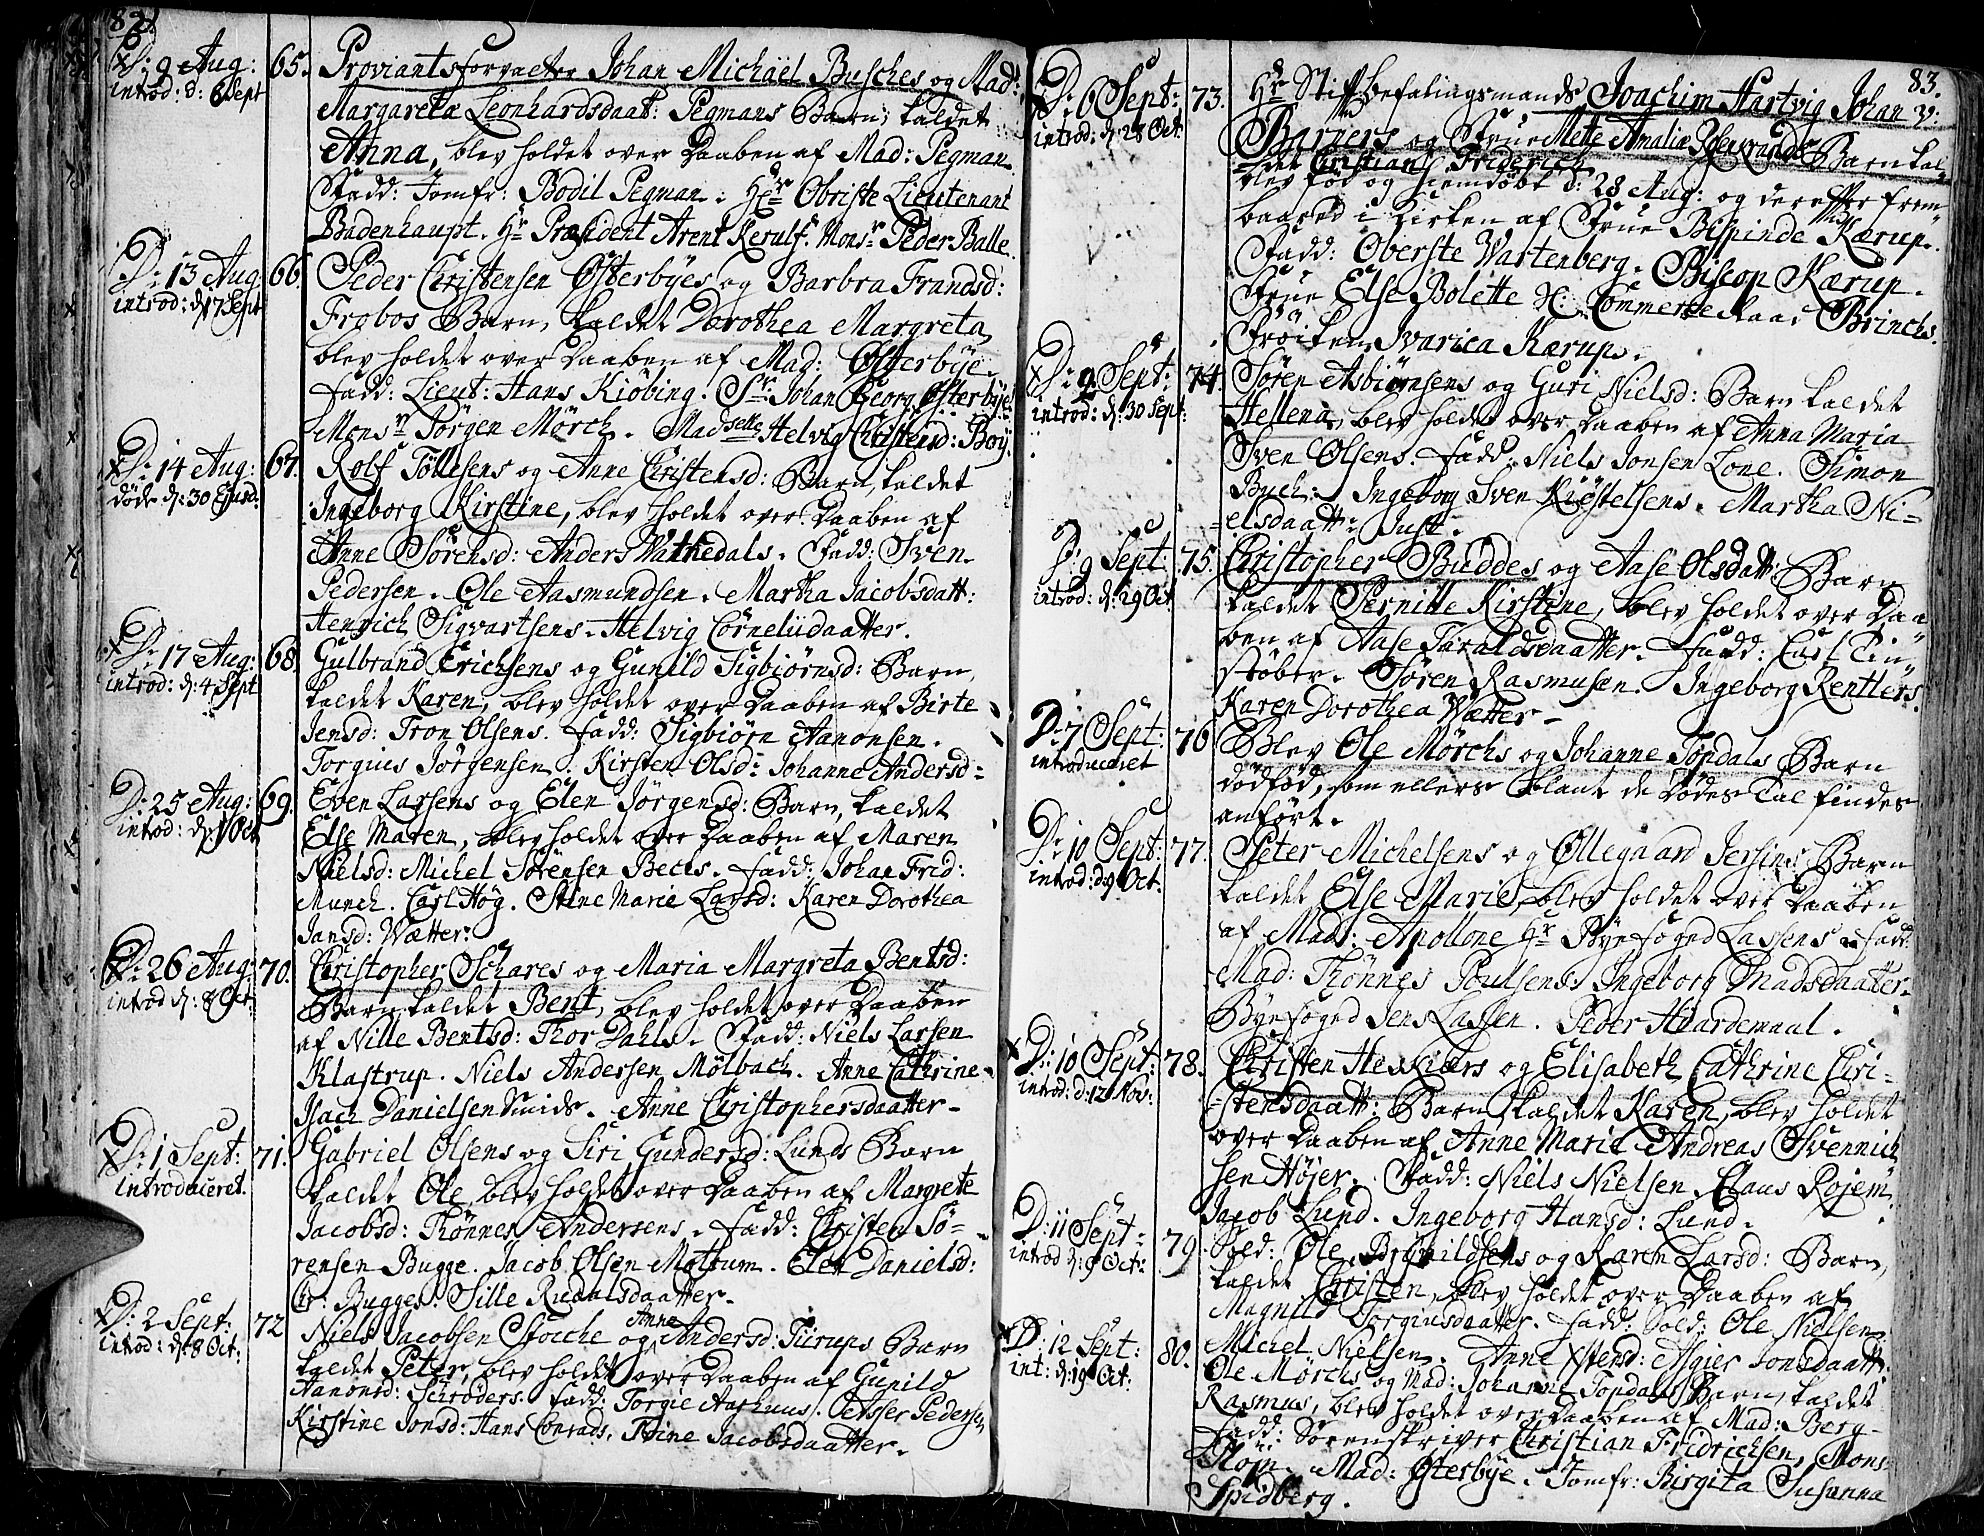 82.
D: 9 Aug: 65. Proviantsforvalter Johan Michaël Busches og Mad:
introd: d: 6 Sept Margareta Leonhardsdaat: Pegmans Barn, kaldet
Anna, blev holdet over Daaben af Mad: Pegman.
Fadd: Jomfr: Bodil Pegman. Hr Obriste Lieutenant
Badenhaupt. Hr Præsident Arent Kerulf. Monsr Peder Balle.
D: 13 Aug 66. Peder Christensen Østerbyes og Barbra Frandsd:
introd: d: 17 Sept Frobos Barn, kaldet Dorothea Margreta,
blev holdet over Daaben af Mad: Østerbye.
Fadd: Lieut: Hans Kiöbing. Sr. Johan Georg Østerbye
Monsr Jørgen Mörch. Madselle Helvig Christensd: Boy.
D: 14 Aug: 67. Rolf Töllesens og Anne Christensd: Barn, kaldet
döde d: 30 Ejusd: Ingeborg Kirstine, blev holdet over Daaben af
Anne Sörensd: Anders Wathedals. Fadd: Sven
Pedersen. Ole Aasmundsen. Martha Jacobsdatt:
Henrich Sigvartsens. Helvig Corneliidaatter.
D: 17 Aug: 68. Gulbrand Erichsens og Gunild Sigbiörnsd: Barn,
introd: d: 4 Sept kaldet Karen, blev holdet over Daaben af Birte
Jensd: Tron Olsens. Fadd: Sigbiörn Aanonsen.
Torgius Jörgensen. Kirsten Olsd: Johanne Andersd:
D: 25 Aug: 69. Even Larsens og Elen Jörgensd: Barn, kaldet
introd: d: 1 Oct Else Maren, blev holdet over Daaben af Maren
Nielsd: Michel Sörensen Becks. Fadd: Johan Frid:
Munch. Carl Hög. Stine Marie Larsd: Karen Dorothea
Jansd: Wætter.
D: 26 Aug: 70. Christopher Schares og Maria Margreta Bentsd:
introd d: 8 Oct: Barn, kaldet Bent, blev holdet over Daaben
af Nille Bentsd: Thor Dahls. Fadd: Niels Larsen
Klastrup. Niels Andersen Mölbach. Anne Cathrine
Isach Danielsen Smids. Anne Christophersdaatter.
D: 1 Sept: 71. Gabriel Olsens og Siri Gundersd: Lunds Barn
introduceret. kaldet Ole, blev holdet over Daaben af Margrete
Jacobsd: Thönnes Andersens. Fadd: Christen Sö-
rensen Bugge. Jacob Olsen Moltum. Elen Danielsd:
Chr: Bugges. Sille Rudalsdaatter.
D: 2 Sept: 72 Niels Jacobsen Storche og Anne Andersd: Tiirups Barn
introd: d: 8 Oct: kaldet Peter, blev holdet over Daaben af Gunild
Aanonsd: Schröders. Fadd: Torgie Aarhuus. Asser Pedersen
Kirstine Jonsd: Hans Conrads. Trine Jacobsdaatter.
83.
D: 6 Sept: 73. Hr Stiftbefalingsmands Joachim Hartvig Johan v:
introd: d: 28 Oct: Barners og Frue Mette Amalia Barn kal-
det Christian Friderich
blev föd og hiemdöbt d: 28 Aug: og derefter frem-
baared i Kirken af Frue Bispinde Kærup.
Fadd: Oberste Wartenberg. Biscop Kærup.
Frue Else Bolette Hr: Commerce Raad Brinchs.
Fröiken Ivarica Kærup.
D: 9 Sept: 74. Sören Asbiörnsens og Guri Nielsd: Barn kaldet
introd: d: 30 Sept: Hellena, blev holdet over Daaben af Anna Maria
Sven Olsens. Fadd: Niels Jonsen Lone. Simon
Bych: Ingeborg Sven Kiöstelsens. Martha Ni-
elsdaatt: Just.
D: 9 Sept: 75. Christopher Buddes og Aase Olsdatt: Barn
introd: d: 29 Oct kaldet Pernille Kirstine, blev holdet over Daa-
ben af Aase Taraldsdaatter. Fadd: Carl Tin-
støber. Sören Rasmusen. Ingeborg Rentlers.
Karen Dorothea Wætter.
D: 7 Sept: 76 Blev Ole Mörchs og Johanne Topdals Barn
introduceret dödföd, som ellers blant de Dödes Tal findes
anfört.
D: 10 Sept: 77. Peter Michelsens og Ollegaard Jersins Barn
introd: d: 9 Oct. kaldet Else Marie, blev holdet over Daaben
af Mad: Apollone Hr Byefoged Lassens. Fadd:
Mad: Thönnes Poulsens. Ingeborg Madsdaatter.
Byefoged Jens Lassen. Peder Haardemaal.
D: 10 Sept: 78. Christen Henkiers og Elisabeth Cathrine Chri-
introd: d: 12 Nov: stensdaatt: Barn, kaldet Karen, blev holdet
over Daaben af Anne Marie Andreas Svennich-
sen Höjer. Fadd: Niels Nielsen. Claus Rojem.
Jacob Lund. Ingeborg Hansd: Lund.
D: 11 Sept: 79. Sold: Ole Brynildsens og Karen Larsd: Barn,
introd d: 9 Oct: kaldet Christen, blev holdet over Daaben af
Magnild Torgiusdaatter. Fadd: Sold: Ole Nielsen.
Michel Nielsen. Anne Xstensd: Asgier Jonsdaatt:
D: 12 Sept: 80. Ole Mörchs og Mad: Johanne Topdals Barn, kaldet
int: d: 19 Oct: Rasmus, blev holdet over Daaben af Mad: Berg-
Fadd: Sorenskriver Christian Fridrichsen, Mons:
Mad: Østerbye. Jomfr: Birgita Susanna
Spidberg.